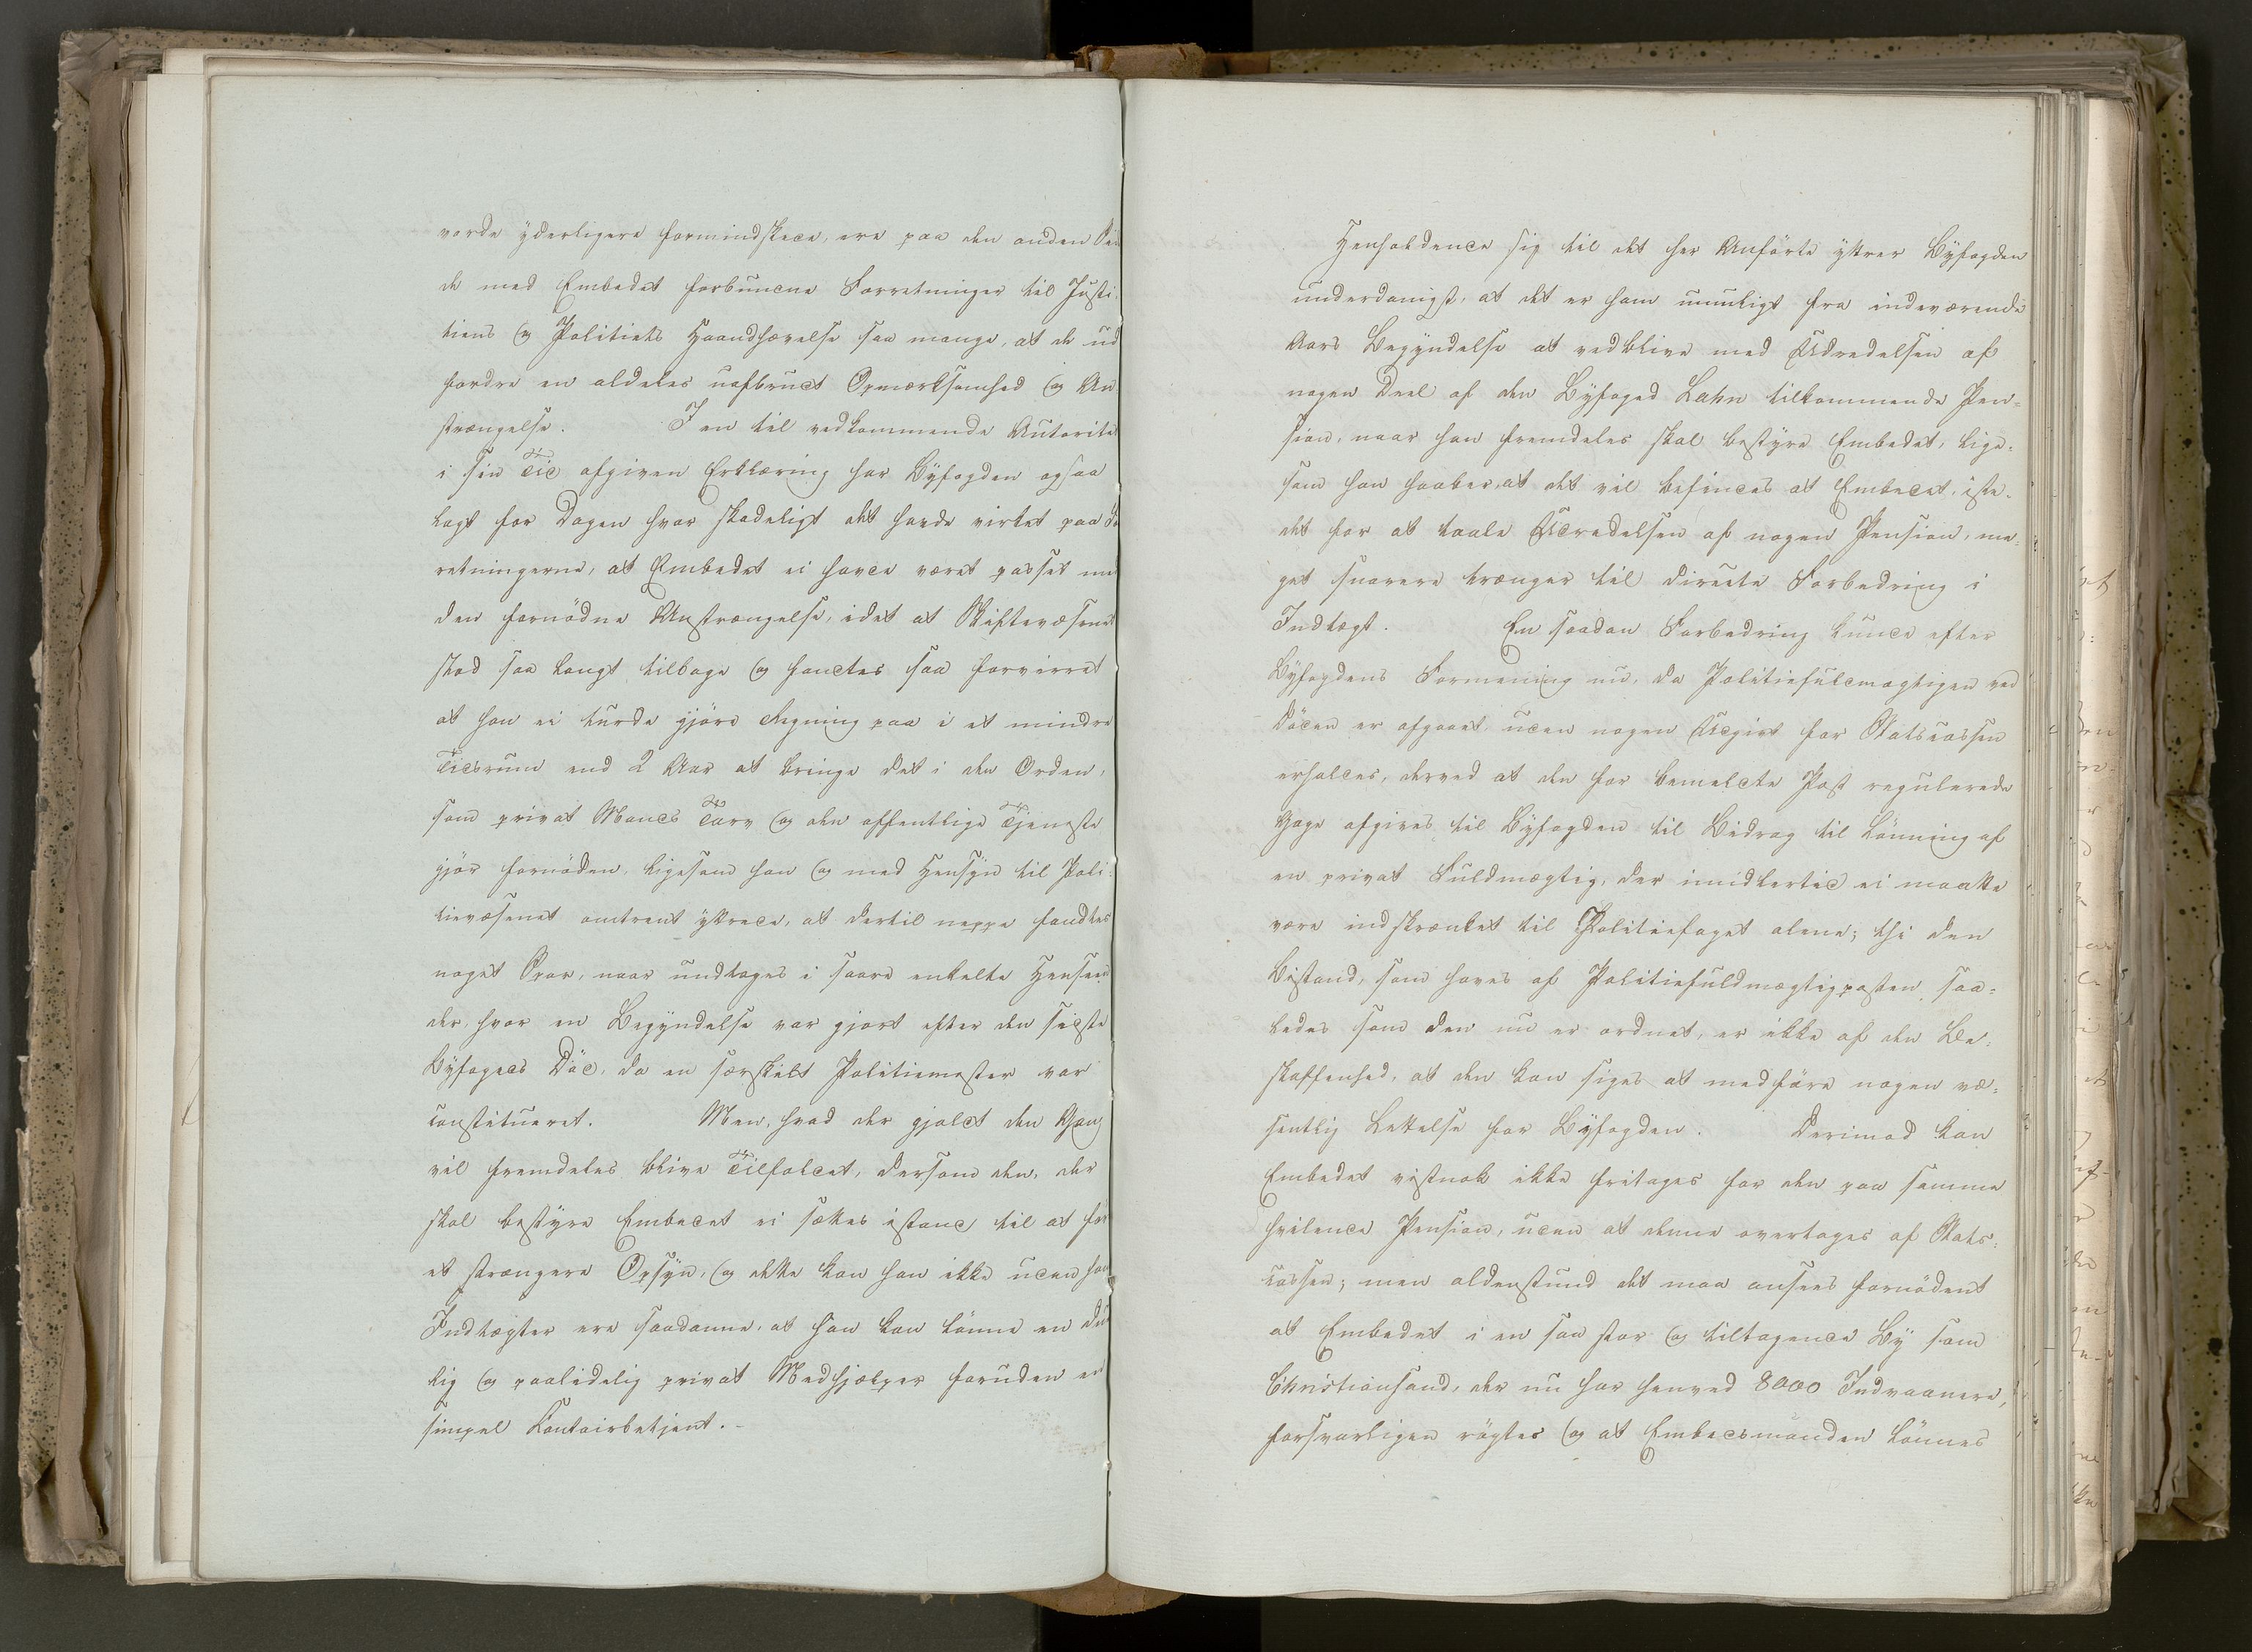 vorde yderligere formindskede, ere paa den anden Sii
de med Embedet forbundne Forretninger til Justi-
tiens og Politiets Haandhævelse saa mange, at de ud
fordre en aldeles uafbrudt Opmærksomhed og An
strængelse. I en til vedkommende Autoritet
i sin Tid afgiven Erklæring har Byfogden ogsaa
lagt for Dagen hvor skadeligt det havde virket paa Fo
retningerne, at Embedet ei havde været passet me
den fornödne Anstrængelse, idet at Skiftevæsenet
stod saa langt tilbage og fandtes saa forvirret
at han ei turde gjöre Regning paa i et mindre
Tidsrum end 2 Aar at bringe det i den Orden,
som privat Mands Tarv og den offentlige Tjeneste
gjör fornöden, ligesom han og med Hensyn til Poli-
tievæsenet omtrent yttrede, at dertil neppe fandtes
noget Spor, naar undtages i saare enkelte Hensee
der, hvor en Begyndelse var gjort efter den sidste
Byfogeds Död, da en særskilt Politiemester var
constitueret. Men, hvad der gjaldt den Gang
vil fremdeles blive Tilfældet, dersom den, der
skal bestyre Embedet ei sættes istand til at före
et strængere Opsyn, og dette kan han ikke uden hans
Indtægter ere saadanne, at han kan lönne en du
lig og paalidelig privat Medhjælper foruden en
simpel Contoirbetjent. -
Henholdende sig til det her Anförte yttrer Byfogden
underdanigst, at det er ham umuligt fra indeværende
Aars Begyndelse at vedblive med Udredelsen af
nogen Deel af den Byfoged Lahn tilkommende Pen-
sion, naar han fremdeles skal bestyre Embedet, lige-
som han haaber, at det vil befindes at Embedet, iste-
det for at taale Udredelsen af nogen Pension, me-
get snarere trænger til directe Forbedring i
Indtægt. En saadan Forbedring kunde efter
Byfogdens Formening nu, da Politiefuldmægtigen ved
Döden er afgaaet, uden nogen Udgivt for Statscassen
erholdes, derved at den for bemeldte Post regulerede
Gage afgives til Byfogden til Bidrag til Lönning af
en privat Fuldmægtig, der imidlertid ei maatte
være indskrænket til Politiefaget alene; thi den
Bistand, som haves af Politiefuldmægtigposten, saa-
ledes som den nu er ordnet, er ikke af den Be-
skaffenhed, at den kan siges at medföre nogen væ-
sentlig Lettelse for Byfogden. Derimod kan
Embedet vistnok ikke fritages for den paa samme
hvilende Pension, uden at denne overtages af Stats-
cassen; men aldenstund det maa ansees fornödent
at Embedet i en saa stor og tiltagende By som
Christiansand, der nu har henved 8000 Indvaanere,
forsvarligen rögtes og at Embedsmanden lönnes